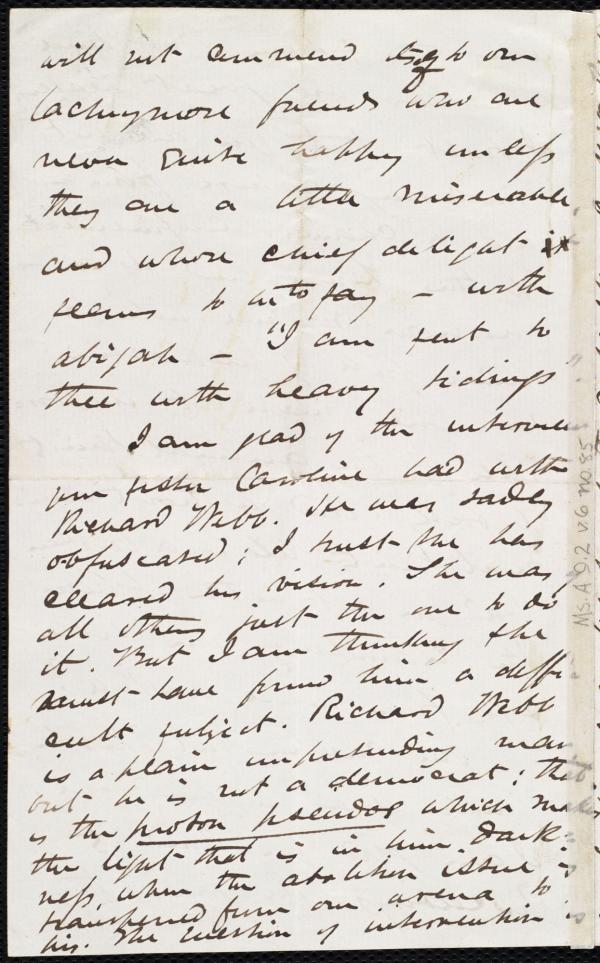 will not commend itself to our
lachrymose friends who are
never quite happy unless
they are a little miserable,
and whose chief delight it
seems to be to say - with
abijah - "I am sent to
thee with heavy tidings"
I am glad of the interview
your sister Caroline had with
Richard Webb. He was sadly
obfuscated; I trust she has
cleared his vision. She was,
all others just the one to do
it. But I am thinking she
must have found him a diffi-
cult subject. Richard Webb
is a plain unpretending man
but he is not a democrat; that
is the proton pseudos which makes
the light that is in him dark-
ness, when the abolition issue is
transferred from our arena to
his. The question of intervention is
Ms.A.9.2 v.6 no.85